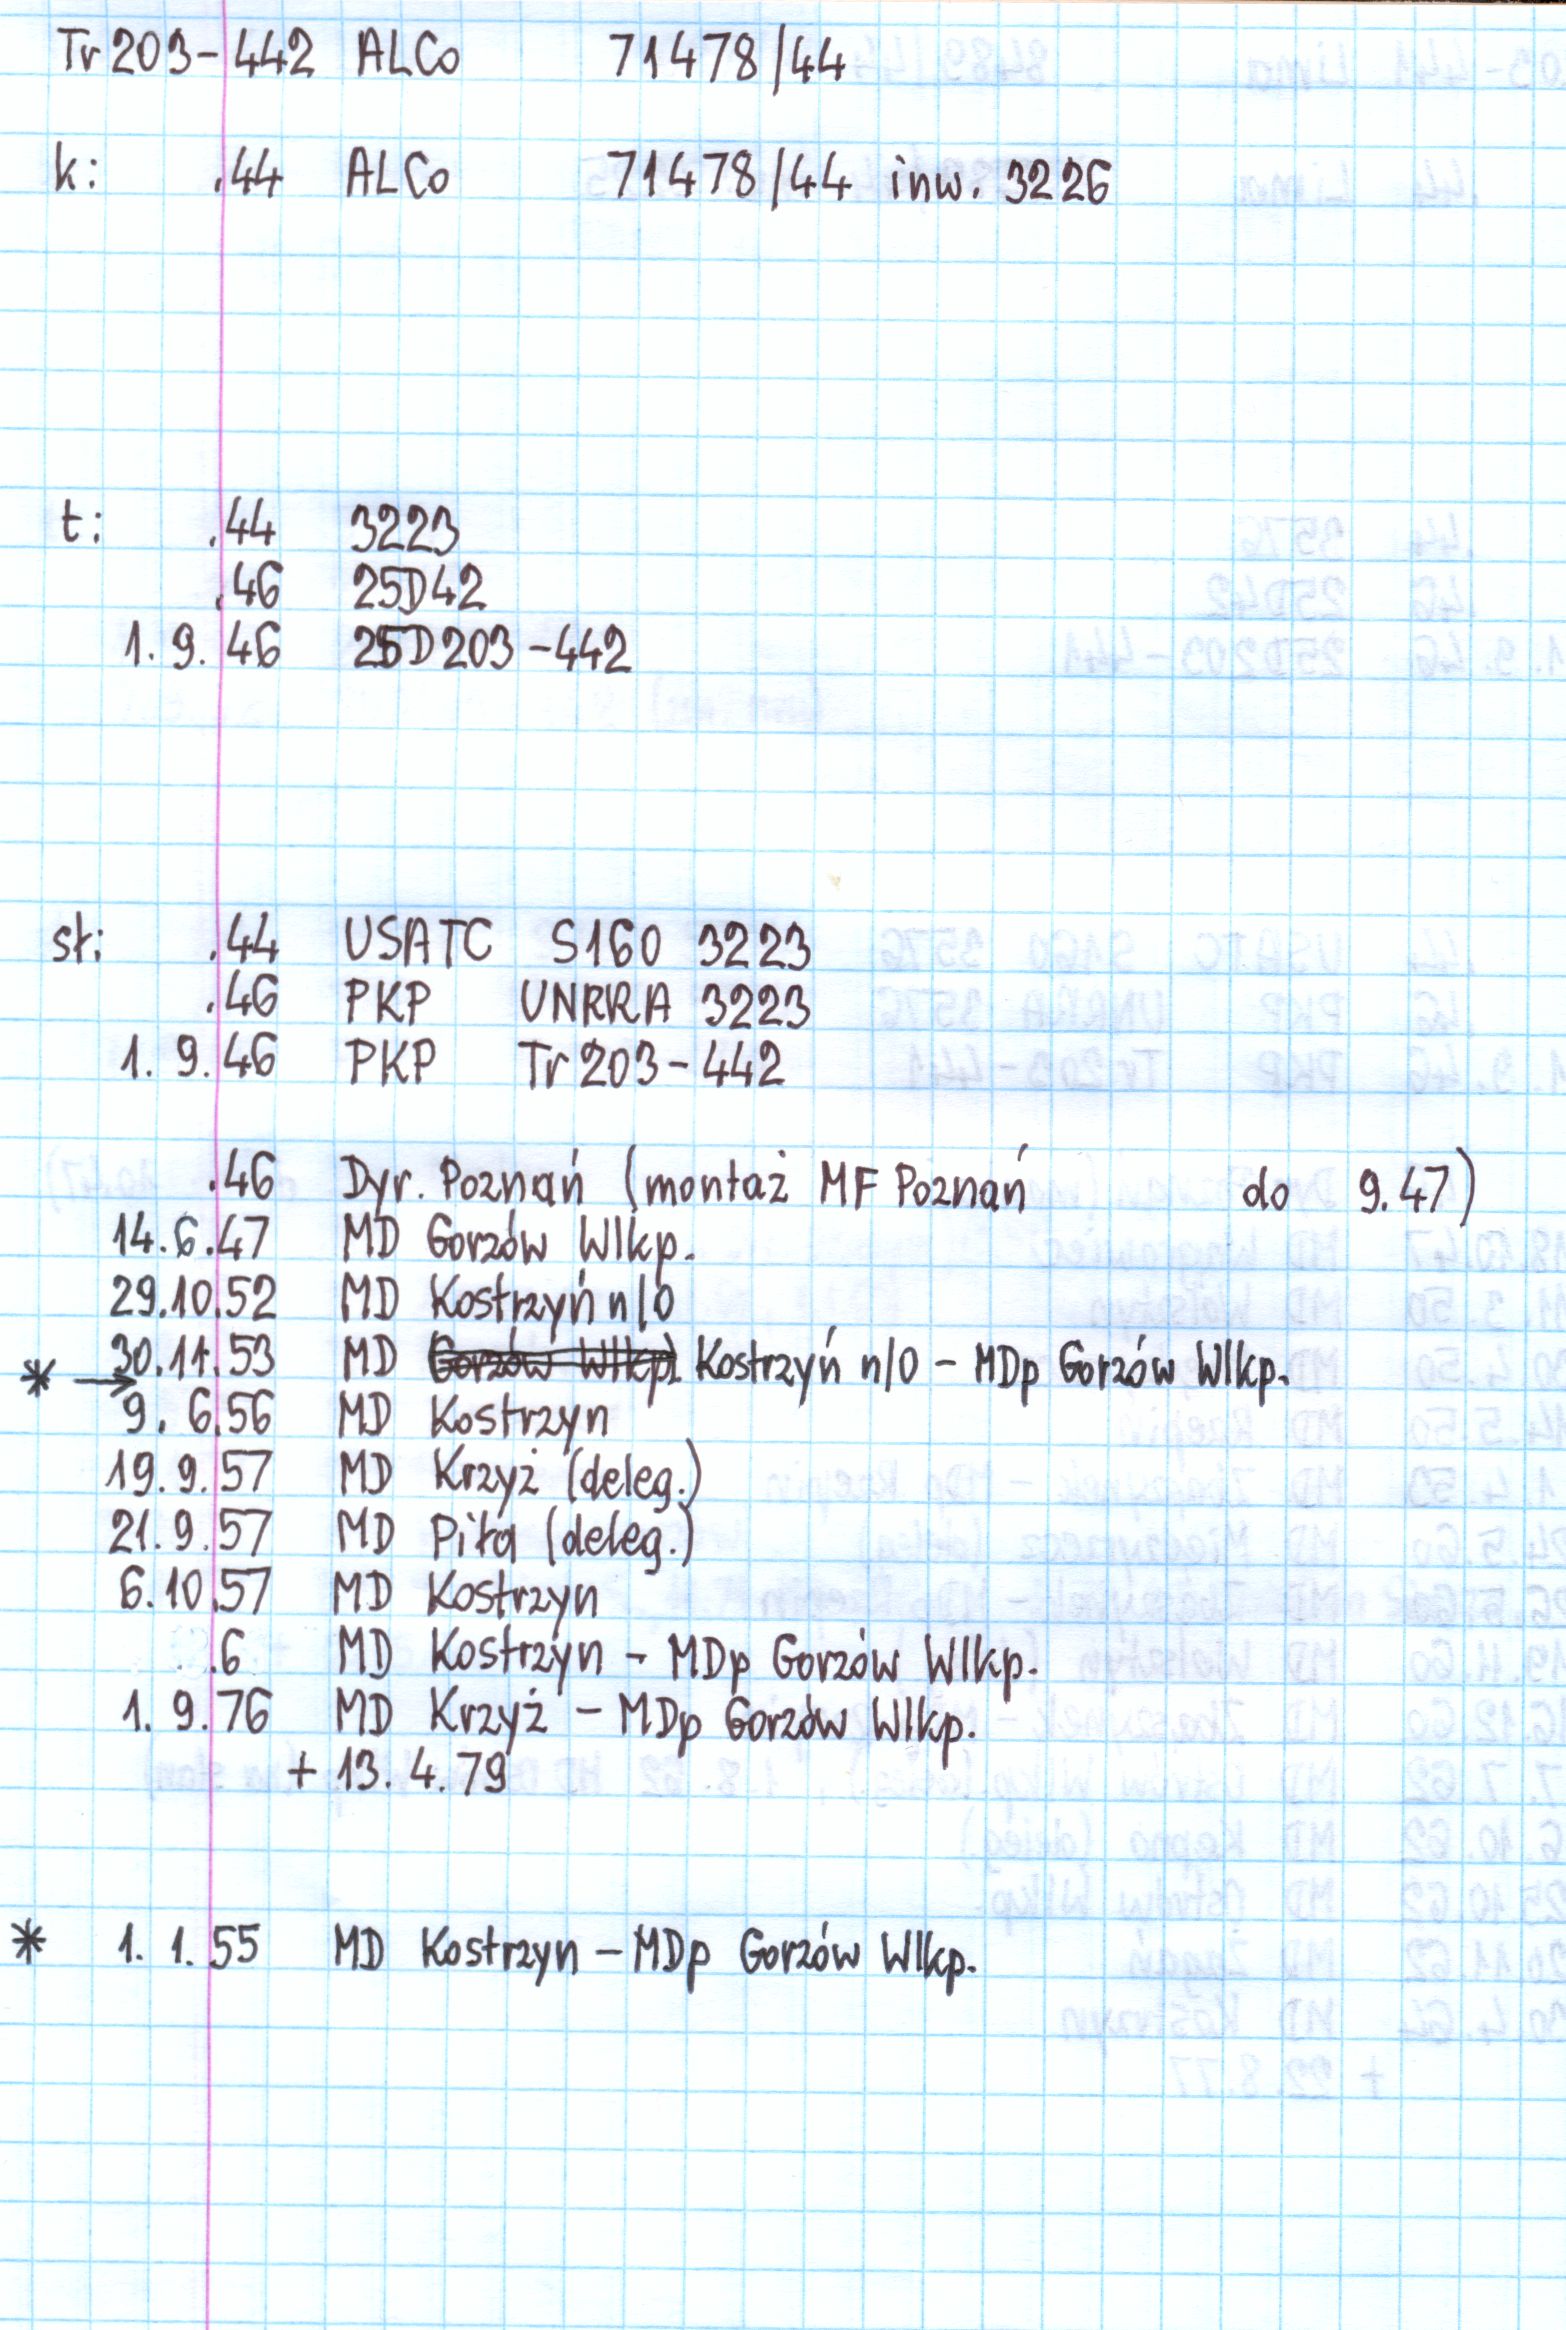 Tr203-442 ALCo 71478/44
k: .44 ALCo 71478/44 inw. 3226
t: .44 3223
.46 25D42
1. 9. 46 25D203-442
sł: .44 USATC S160 3223
.46 PKP UNRRA 3223
1. 9. 46 PKP Tr203-442
.46 Dyr. Poznań (montaż MF Poznań do 9.47)
14.6.47 MD Gorzów Wlkp.
29.10.52 MD Kostrzyń n/O
30.11.53 MD Gorzów Wlkp. Kostrzyń n/O - MDp Gorzów Wlkp.
* →
9. 6.56 MD Kostrzyn
19.9.57 MD Krzyż (deleg.)
21.9.57 MD Piła (deleg.)
6.10.57 MD Kostrzyn
.6 MD Kostrzyn - MDp Gorzów Wlkp.
1. 9.76 MD Krzyż - MDp Gorzów Wlkp.
+ 13. 4. 79
* 1. 1. 55 MD Kostrzyn - MDp Gorzów Wlkp.